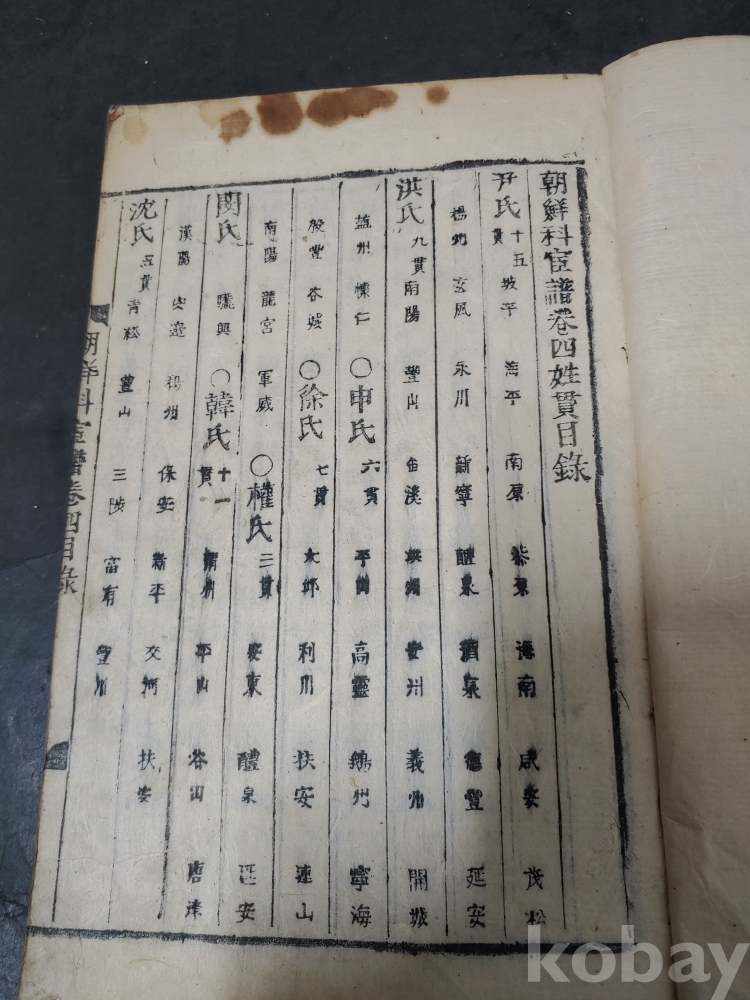 朝鮮科宦譜卷四姓貫目錄
尹氏 十五貫 坡平 海平 南原 柒原 海南 咸安 茂松
楊州 玄風 永川 新寧 醴泉 酒泉 德豐 延安
洪氏 九貫 南陽 豐山 缶溪 洪州 安州 義州 開城
益州 懷仁 ○申氏 六貫 平山 高靈 鵝州 寧海
殷豐 谷城 ○徐氏 七貫 大邱 利川 扶安 連山
南陽 龍宮 軍威 ○權氏 二貫 安東 醴泉 延安
閔氏 驪興 ○韓氏 十一貫 淸州 平山 谷山 唐津
漢陽 安邊 楊州 保安 新平 交河 扶安
沈氏 五貫 靑松 豐山 三陟 富有 豐川
朝鮮科宦譜卷四目錄
kobay